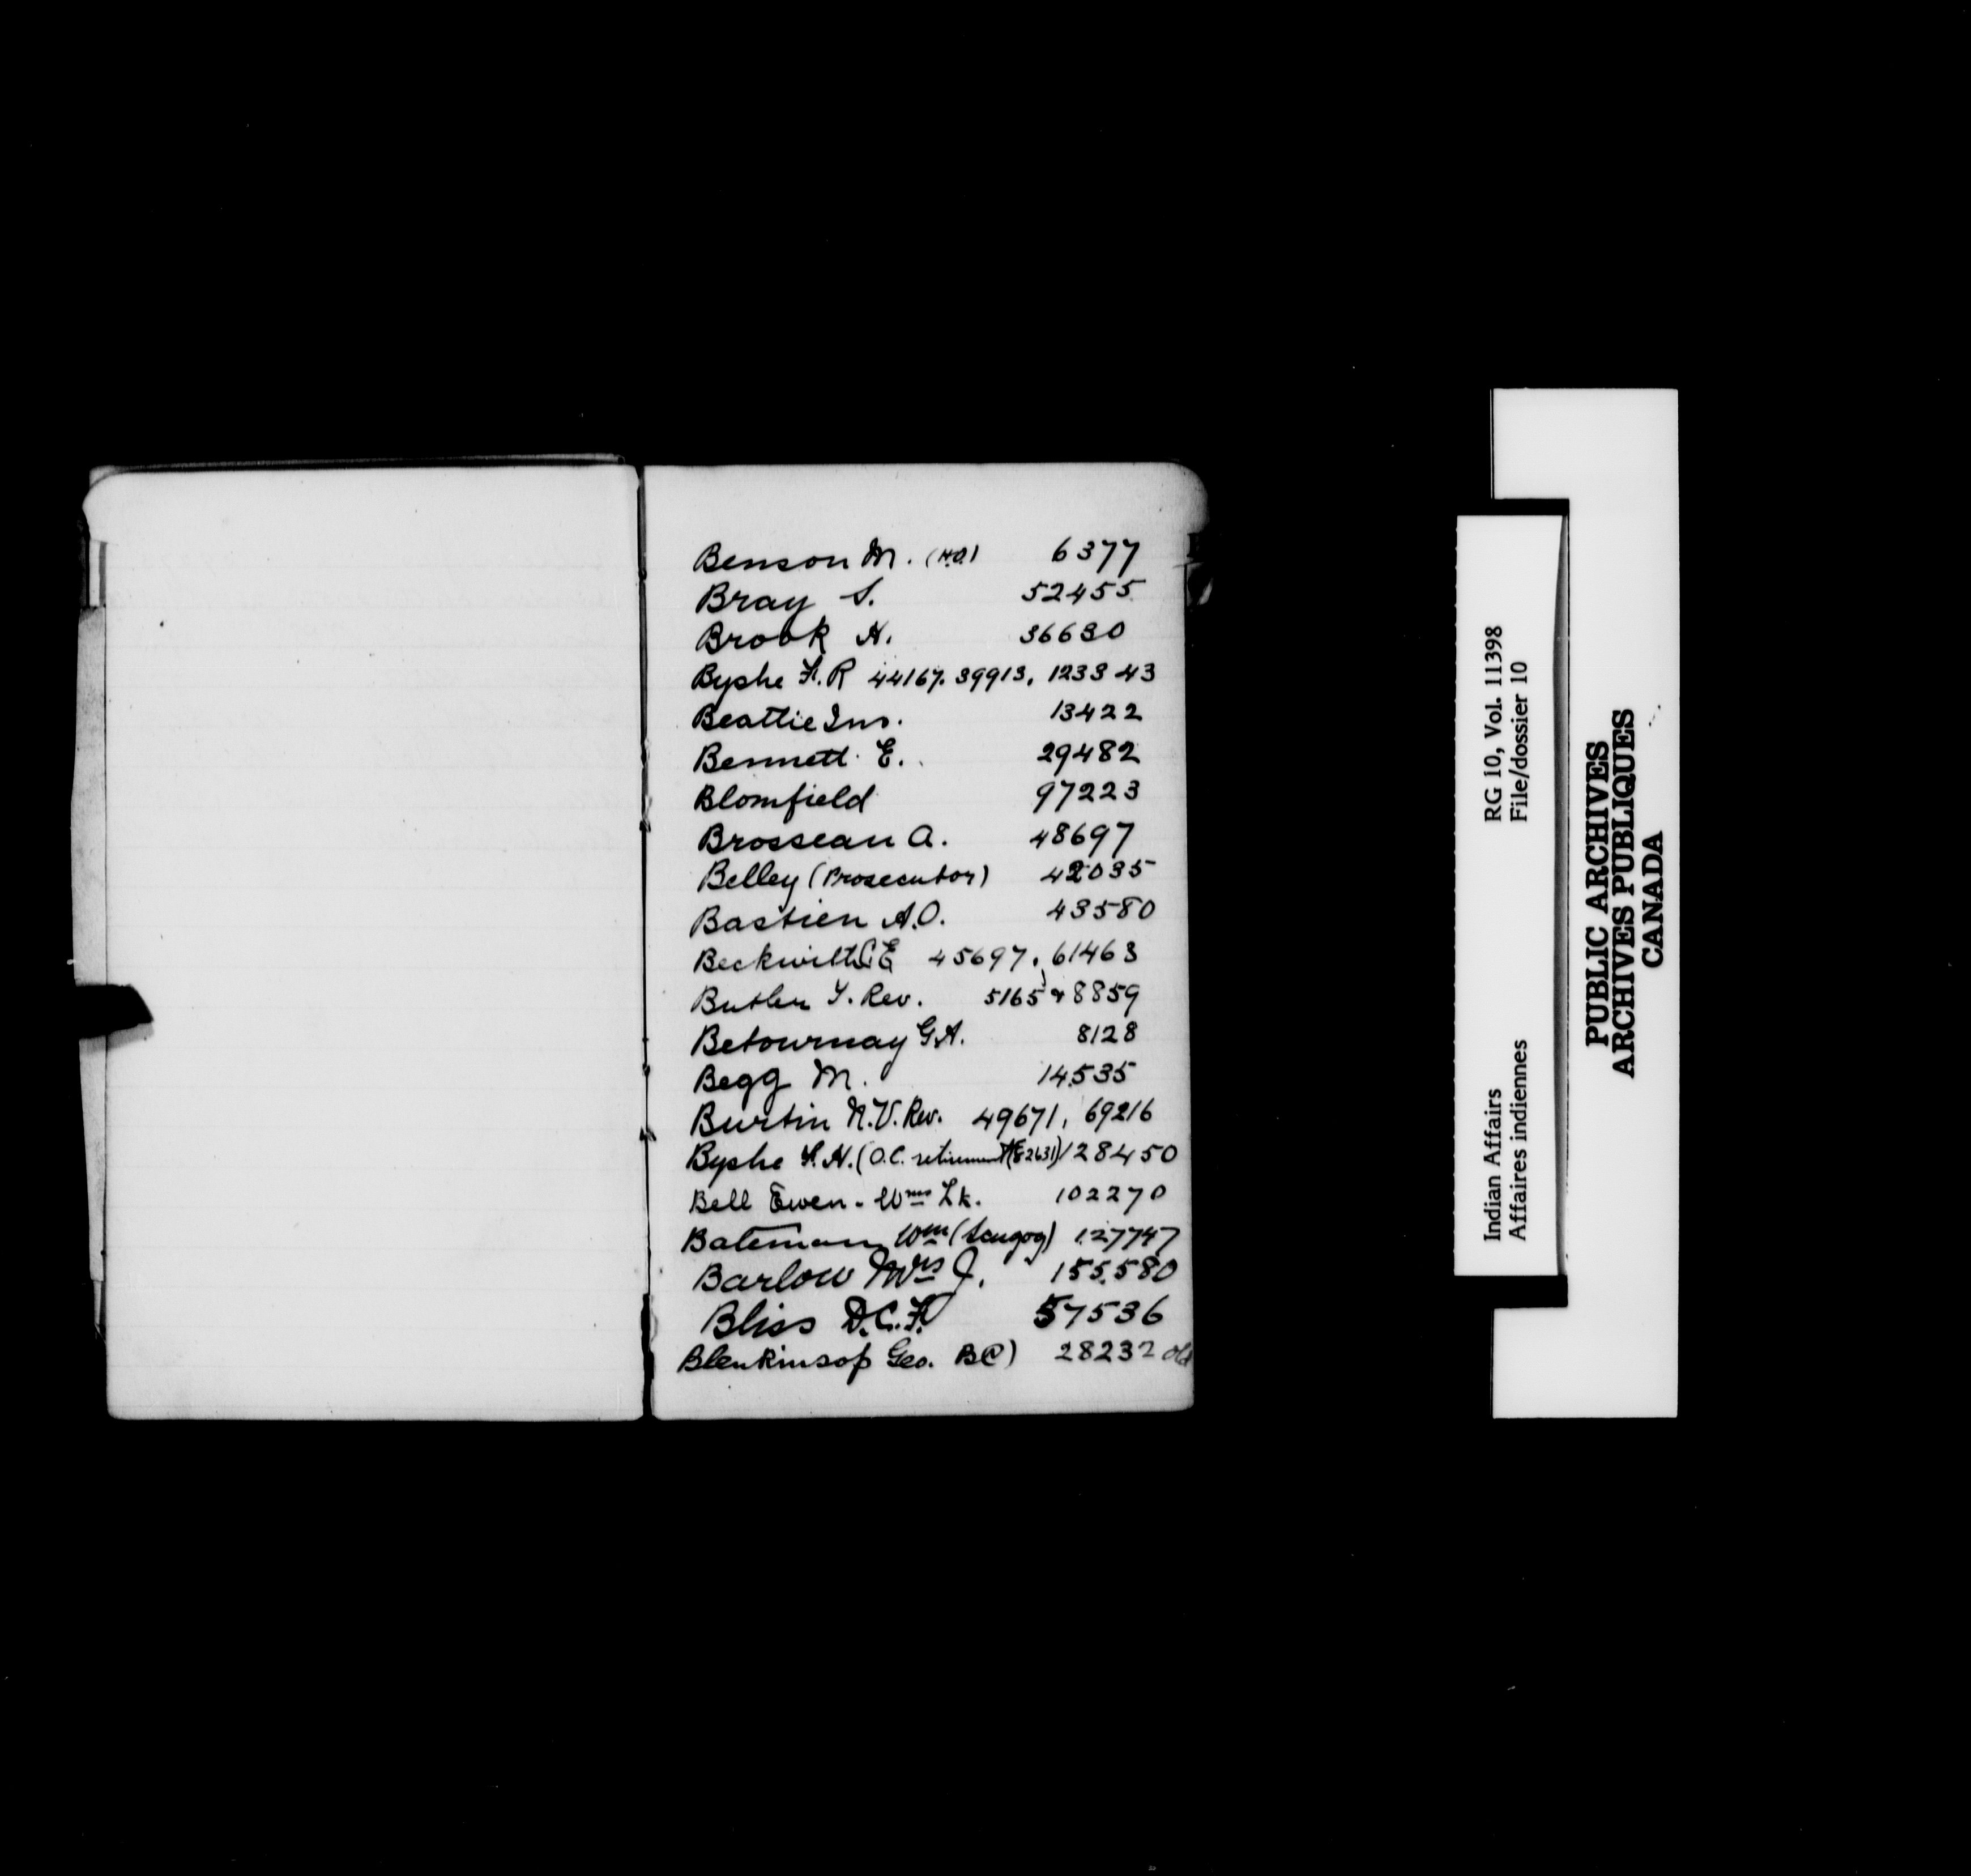 Benson M. (H.O.) 6377
Bray S. 52455
Brook H. 36630
Byshe F.R 44167. 39913, 1233 43
Beattie Jno. 13422
Bennett E. 29482
Blomfield 97223
Brosseau A. 48697
Belley (Prosecutor) 42035
Bastien A.O. 43580
Beckwith C E 45697, 61463
Butler Rev. 5165 & 8859
Betournay G.A. 8128
Begg M. 14535
Burtin N.V. Rev. 49671, 69216
Byshe F.H. (O.C. retirement 128450
Bell Ewen - Wms Lk. 102270
Bateman Wm (Scugog) 127747
Barlow Mrs J. 155,580
Bliss D.C.F. 57536
Blenkinsop Geo. BC) 28232 old
RG 10, Vol. 11398
File/dossier 10
Indian Affairs
Affaires indiennes
PUBLIC ARCHIVES
ARCHIVES PUBLIQUES
CANADA